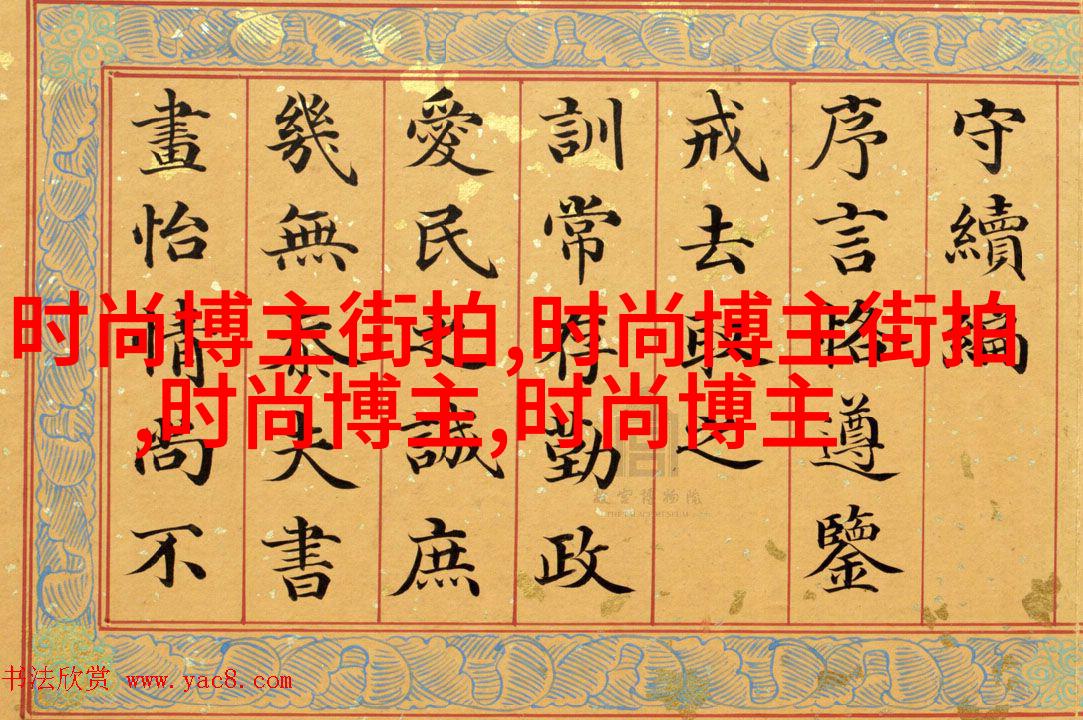 守續編
序言遵鑒
戒去取之
訓常存勤政
愛民之誠庶
幾無忝夫書
畫怡情尚不
时尚博主街拍,时尚博主街拍
,时尚博主,时尚博主
故宫博物院
THE PALACE MUSEUM
书法欣赏 www.yac8.com